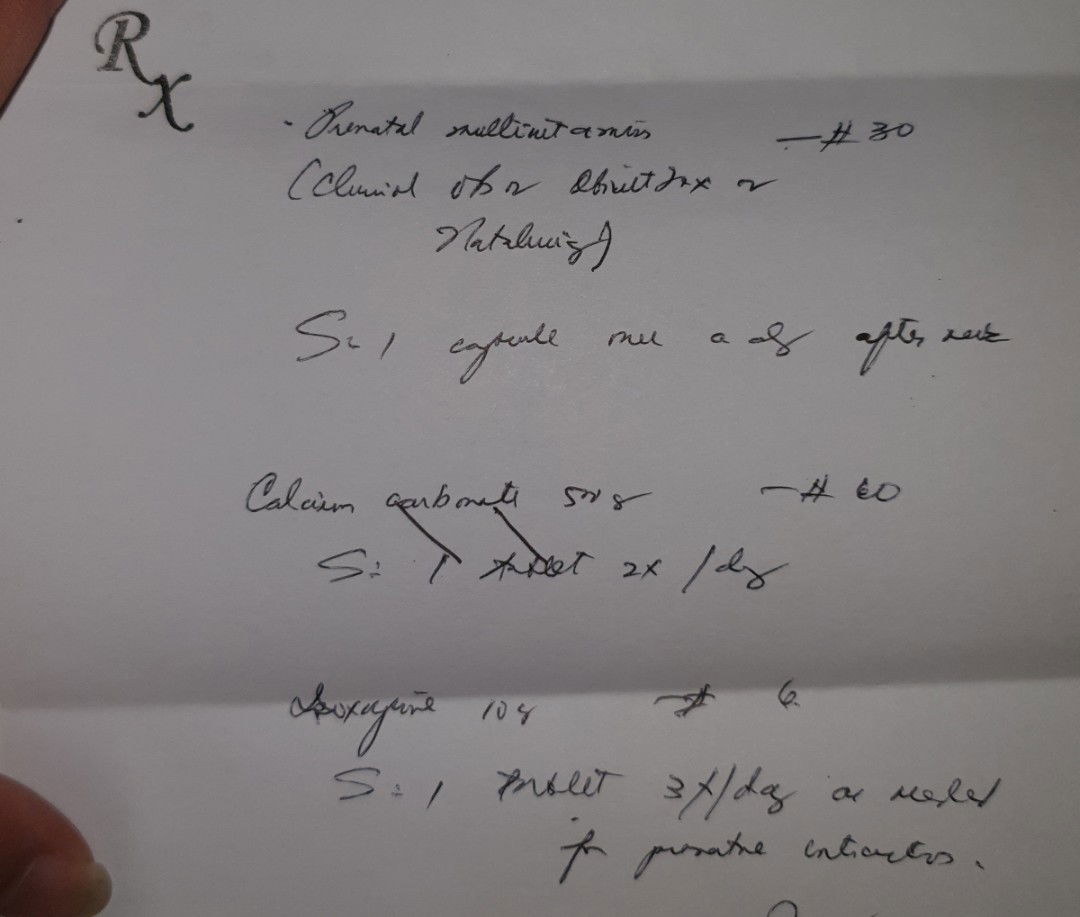 Rx
- Prenatal multivitamins —# 30
(Clusivol ob or Obimin or
)
S: 1 capsule once a day after
Calcium carbonate 500g —# 60
S: 1 tablet 2x /day
Isoxsuprine 10g —# 6
S: 1 tablet 3x/day as needed
for premature contractions.